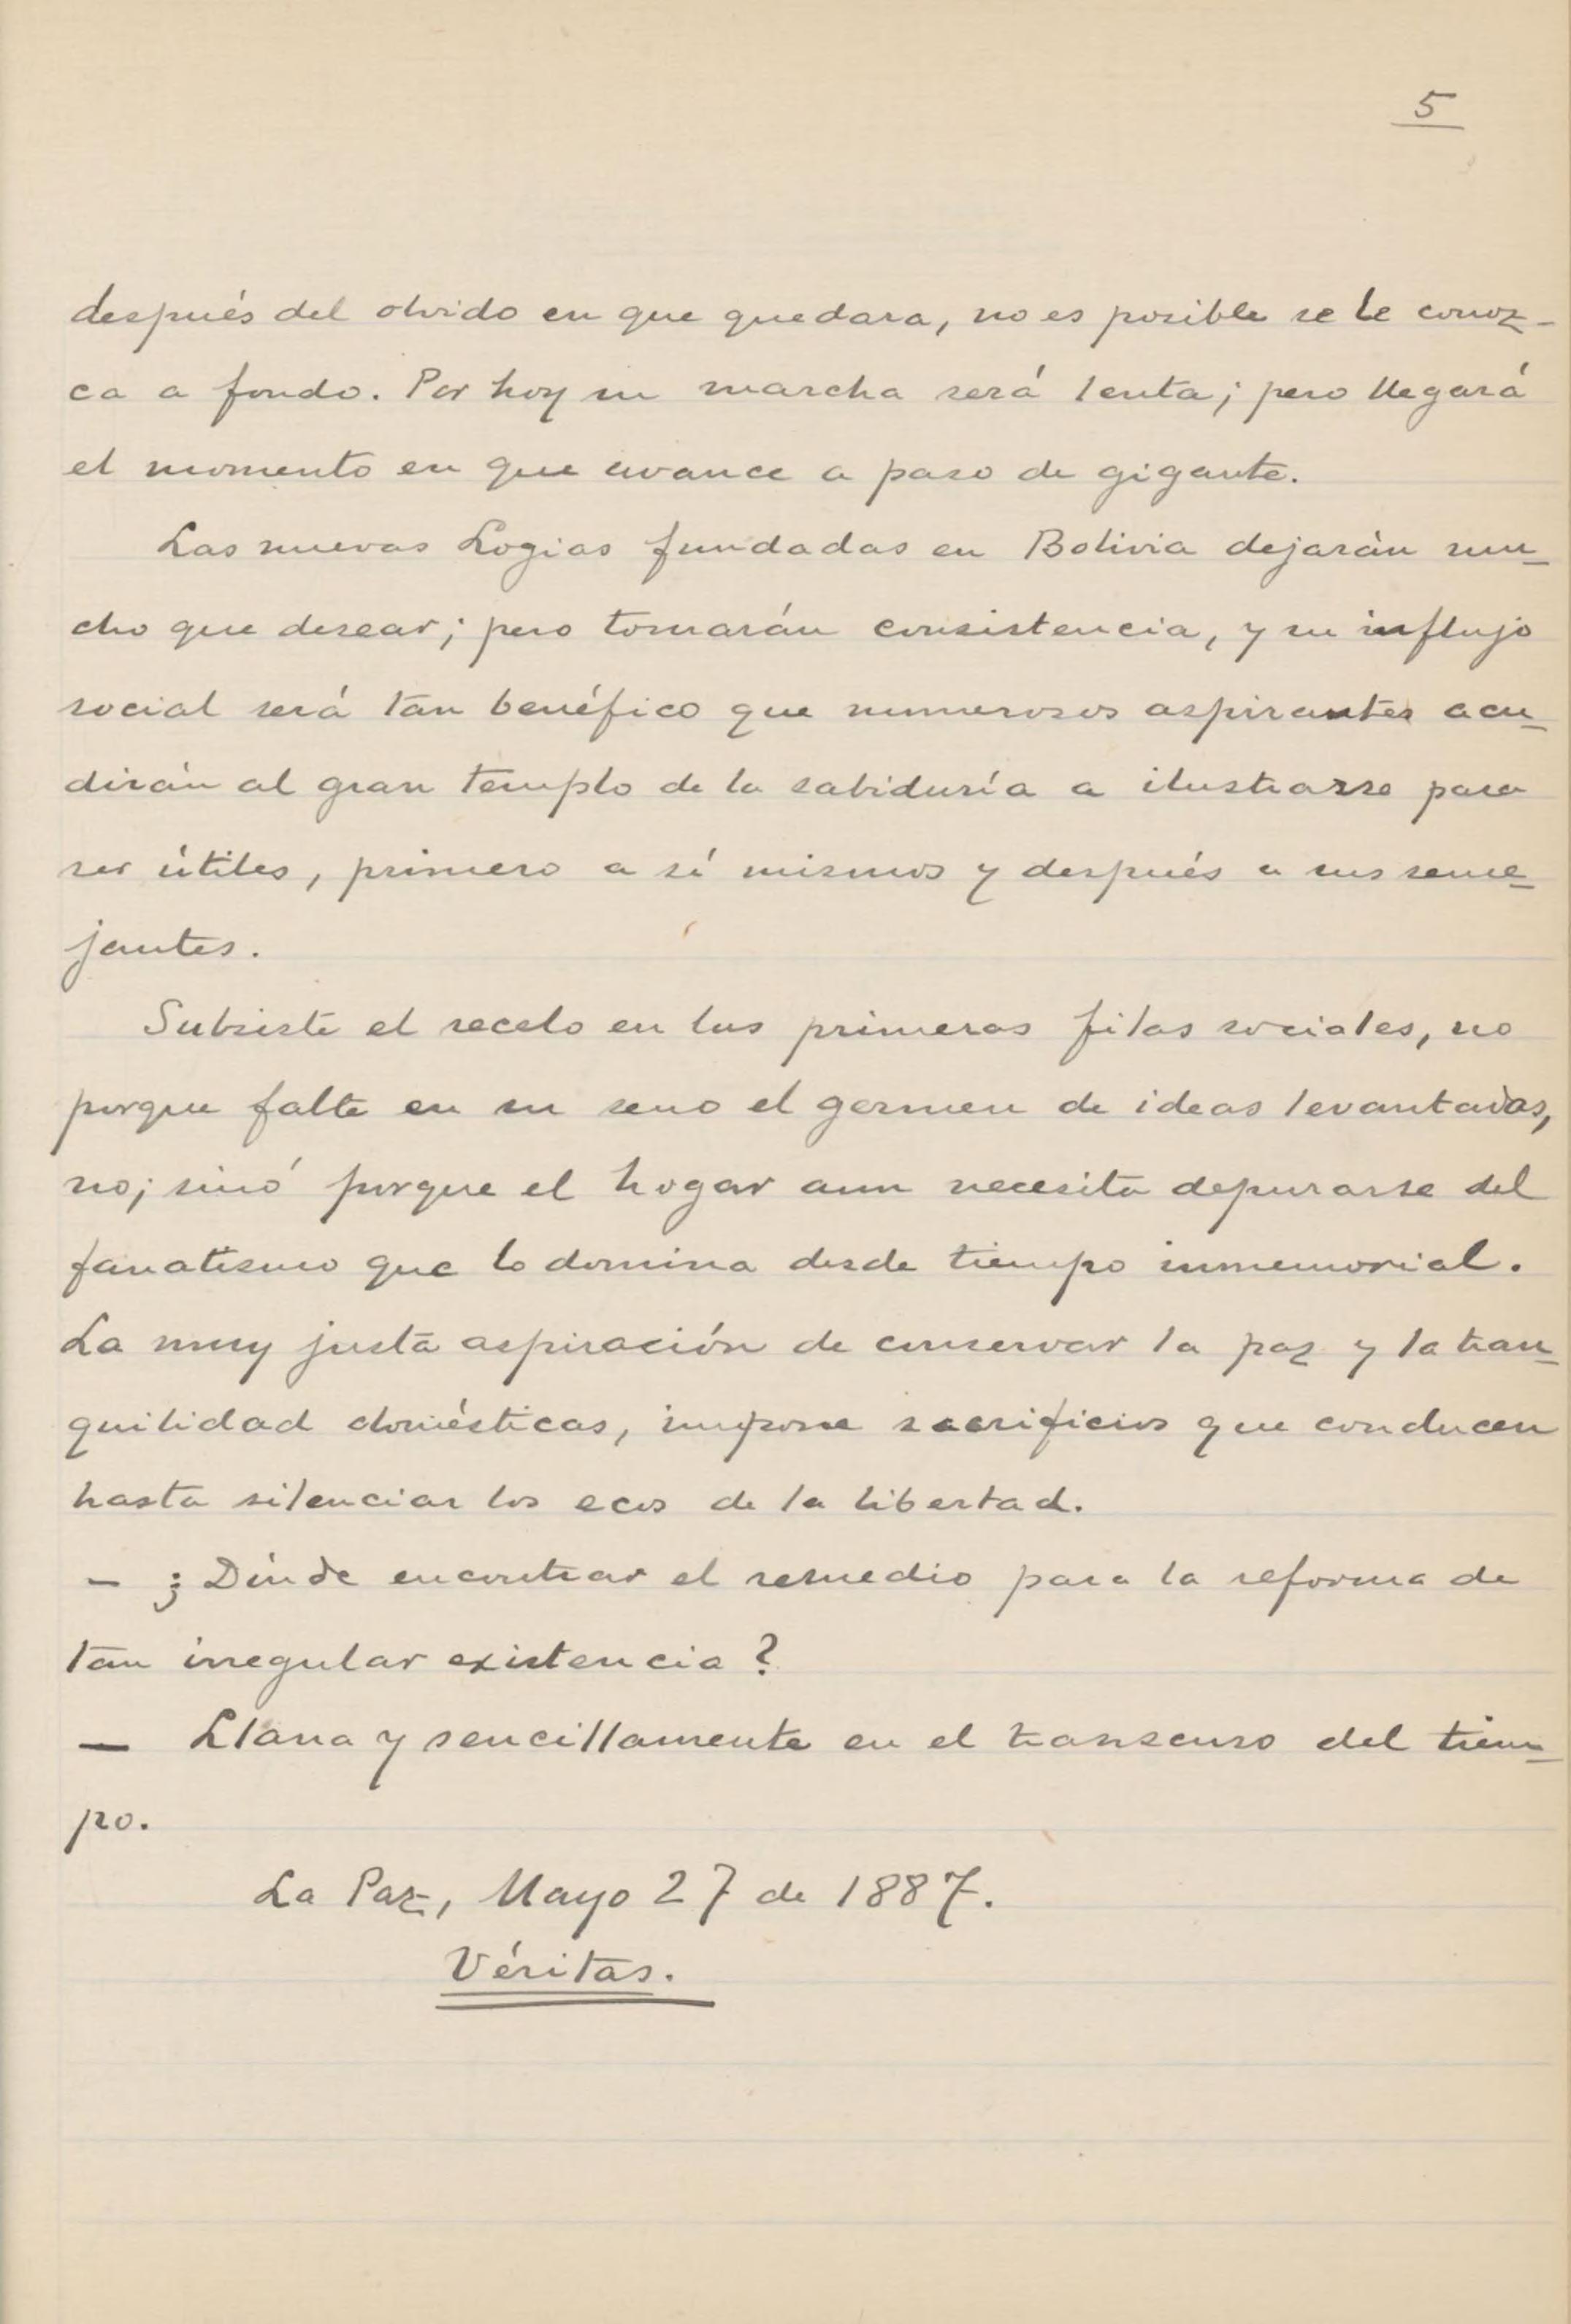 5
después del olvido en que quedara, no es posible se le conoz-
ca a fondo. Por hoy su marcha será lenta; pero llegará
el momento en que avance a paso de gigante.
Las nuevas Logias fundadas en Bolivia dejarán mu-
cho que desear; pero tomarán consistencia, y su influjo
social será tan benéfico que numerosos aspirantes acu-
dirán al gran templo de la sabiduría a ilustrarse para
ser útiles, primero a sí mismos y después a sus seme-
jantes.
Subsiste el recelo en las primeras filas sociales, no
porque falte en su seno el germen de ideas levantadas,
no; sinó porque el hogar aun necesita depurarse del
fanatismo que lo domina desde tiempo inmemorial.
La muy justa aspiración de conservar la paz y la tran-
quilidad domésticas, impone sacrificios que conducen
hasta silenciar los ecos de la libertad.
- ¿Dónde encontrar el remedio para la reforma de
tan irregular existencia?
- Llana y sencillamente en el transcurso del tiem-
po.
La Paz, Mayo 27 de 1887.
Véritas.